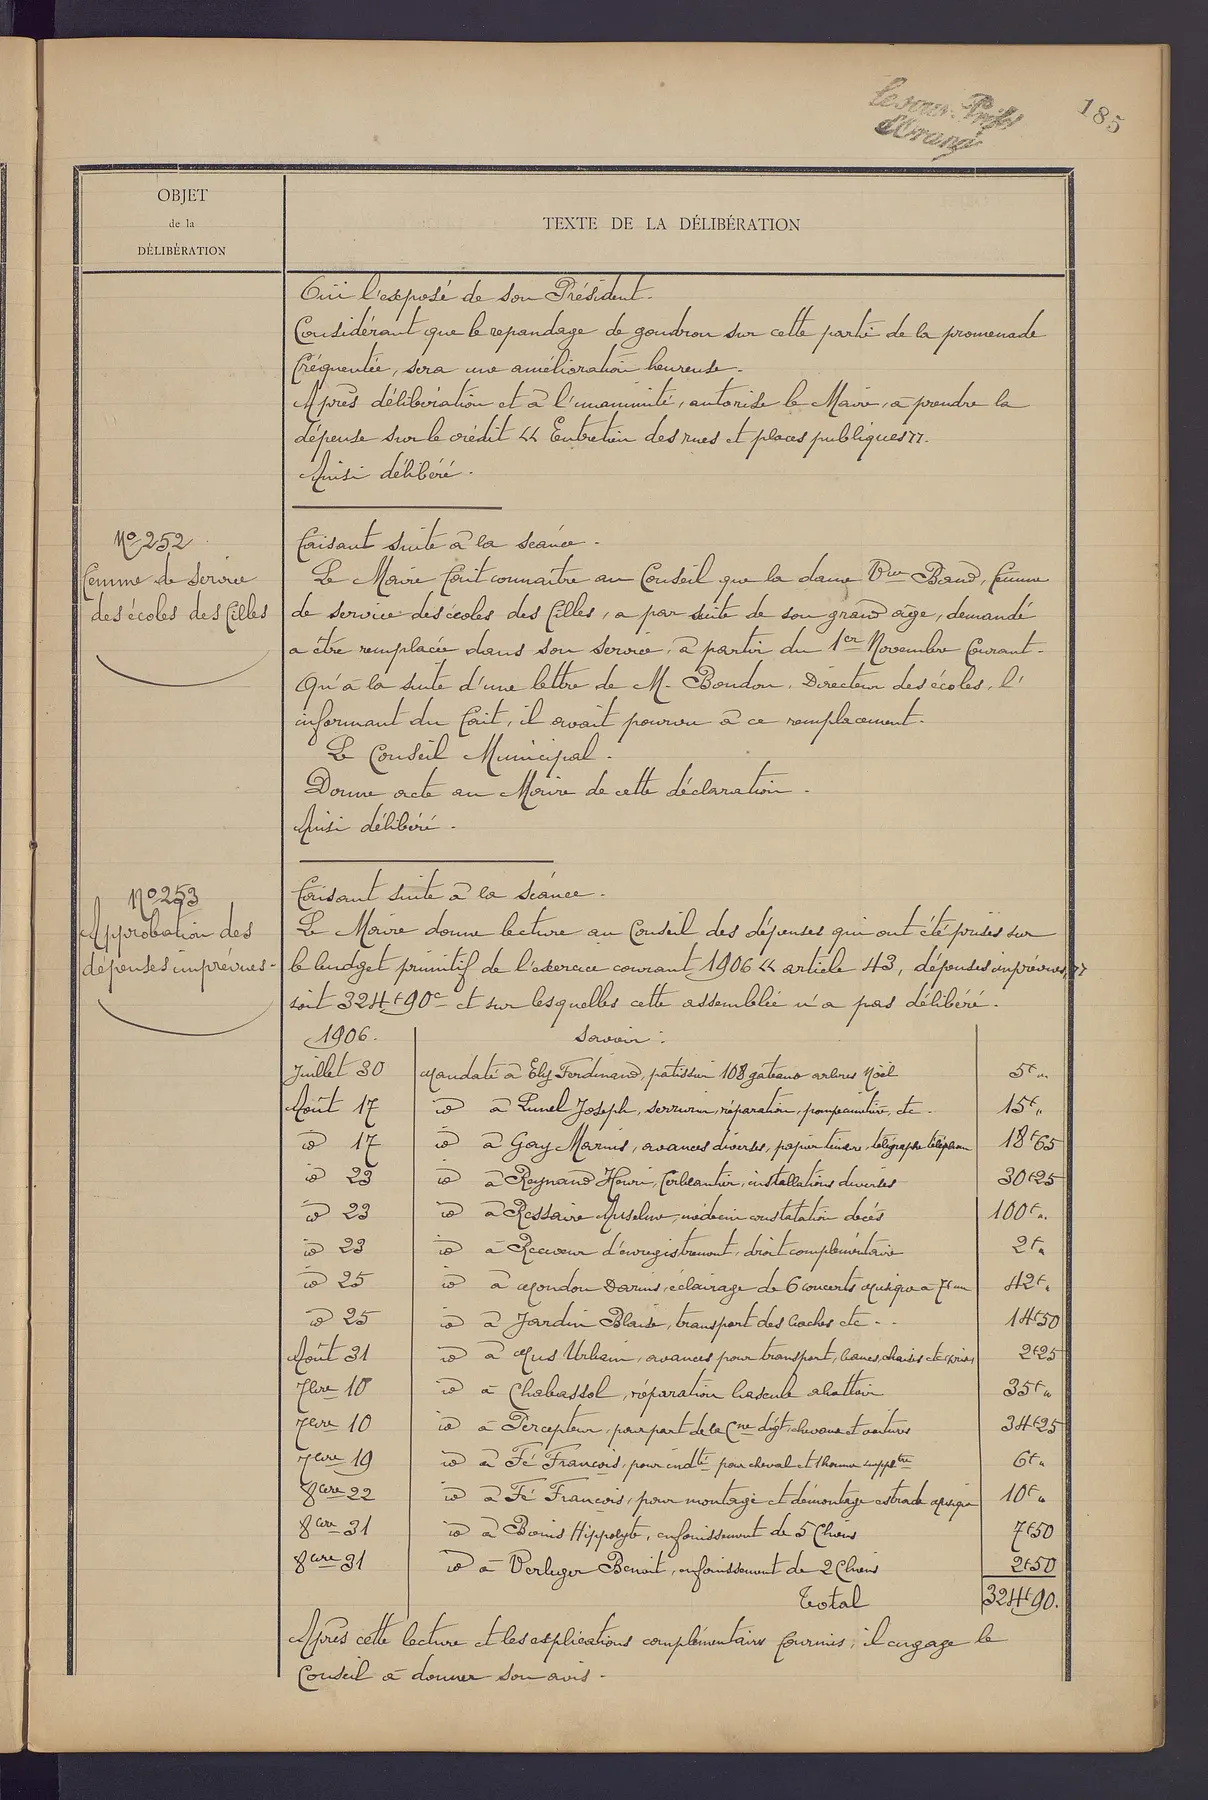 Le sous-Préfet
d'Orange
185
OBJET
de la
DÉLIBÉRATION
TEXTE DE LA DÉLIBÉRATION
Ouï l'exposé de son Président.
Considérant que le repandage de goudron sur cette partie de la promenade
fréquentée, sera une amélioration heureuse.
Après délibération et à l'unanimité, autorise le Maire, à prendre la
dépense sur le crédit " Entretien des rues et places publiques ".
Ainsi délibéré.
N° 252
Femme de service
des écoles des filles
Faisant suite à la séance.
Le Maire fait connaître au Conseil que la dame Vve Baud, femme
de service des écoles des filles, a par suite de son grand âge, demandé
a être remplacée dans son service, à partir du 1er Novembre Courant.
Qu'à la suite d'une lettre de M. Boudon, Directeur des écoles, l'
informant du fait, il avait pourvu à ce remplacement.
Le Conseil Municipal.
Donne acte au Maire de cette déclaration.
Ainsi délibéré.
N° 253
Approbation des
dépenses imprévues.
Faisant suite à la séance.
Le Maire donne lecture au Conseil des dépenses qui ont été prises sur
le budget primitif de l'exercice courant 1906 " article 43, dépenses imprévues, "
soit 324f 90c et sur lesquelles cette assemblée n'a pas délibéré.
1906. savoir :
Juillet 30 Mandaté à Ely Ferdinand, patissier 108 gateaux arbres Noël 5f "
Août 17 id à Lunel Joseph, serrurier, réparation, pompe etc. 15f "
id 17 id à Gay Marius, avances diverses, papier timbre, télégraphe téléphone 18f65
id 23 id à Reynaud Henri, ferblantier, installations diverses 30f25
id 23 id à Ressaire Anselme, médecin constatation décès 100f "
id 23 id à Receveur d'enregistrement, droit complémentaire 2f "
id 25 id à Mondon Darius, éclairage de 6 concerts Musique à 7f un 42f "
id 25 id à Jardin Blaise, transport des baches etc. 14f50
Août 31 id à Mus Urbain, avances pour transport, bancs, chaises 2f25
7bre 10 id à Chabassol, réparation bascule abattoir 35f "
7bre 10 id à Percepteur, pour part de la Cne chevaux et voitures 34f25
7bre 19 id à Fé François, pour indté pour cheval et 1 homme supplre 6f "
8bre 22 id à Fé François, pour montage et démontage estrade Musique 10f "
8bre 31 id à Bonis Hippolyte, enfouissement de 5 Chiens 7f50
8bre 31 id à Verluger Benoit, enfouissement de 2 Chiens 2f50
Total 324f90.
Après cette lecture et les explications complémentaires fournies, il engage le
Conseil à donner son avis.